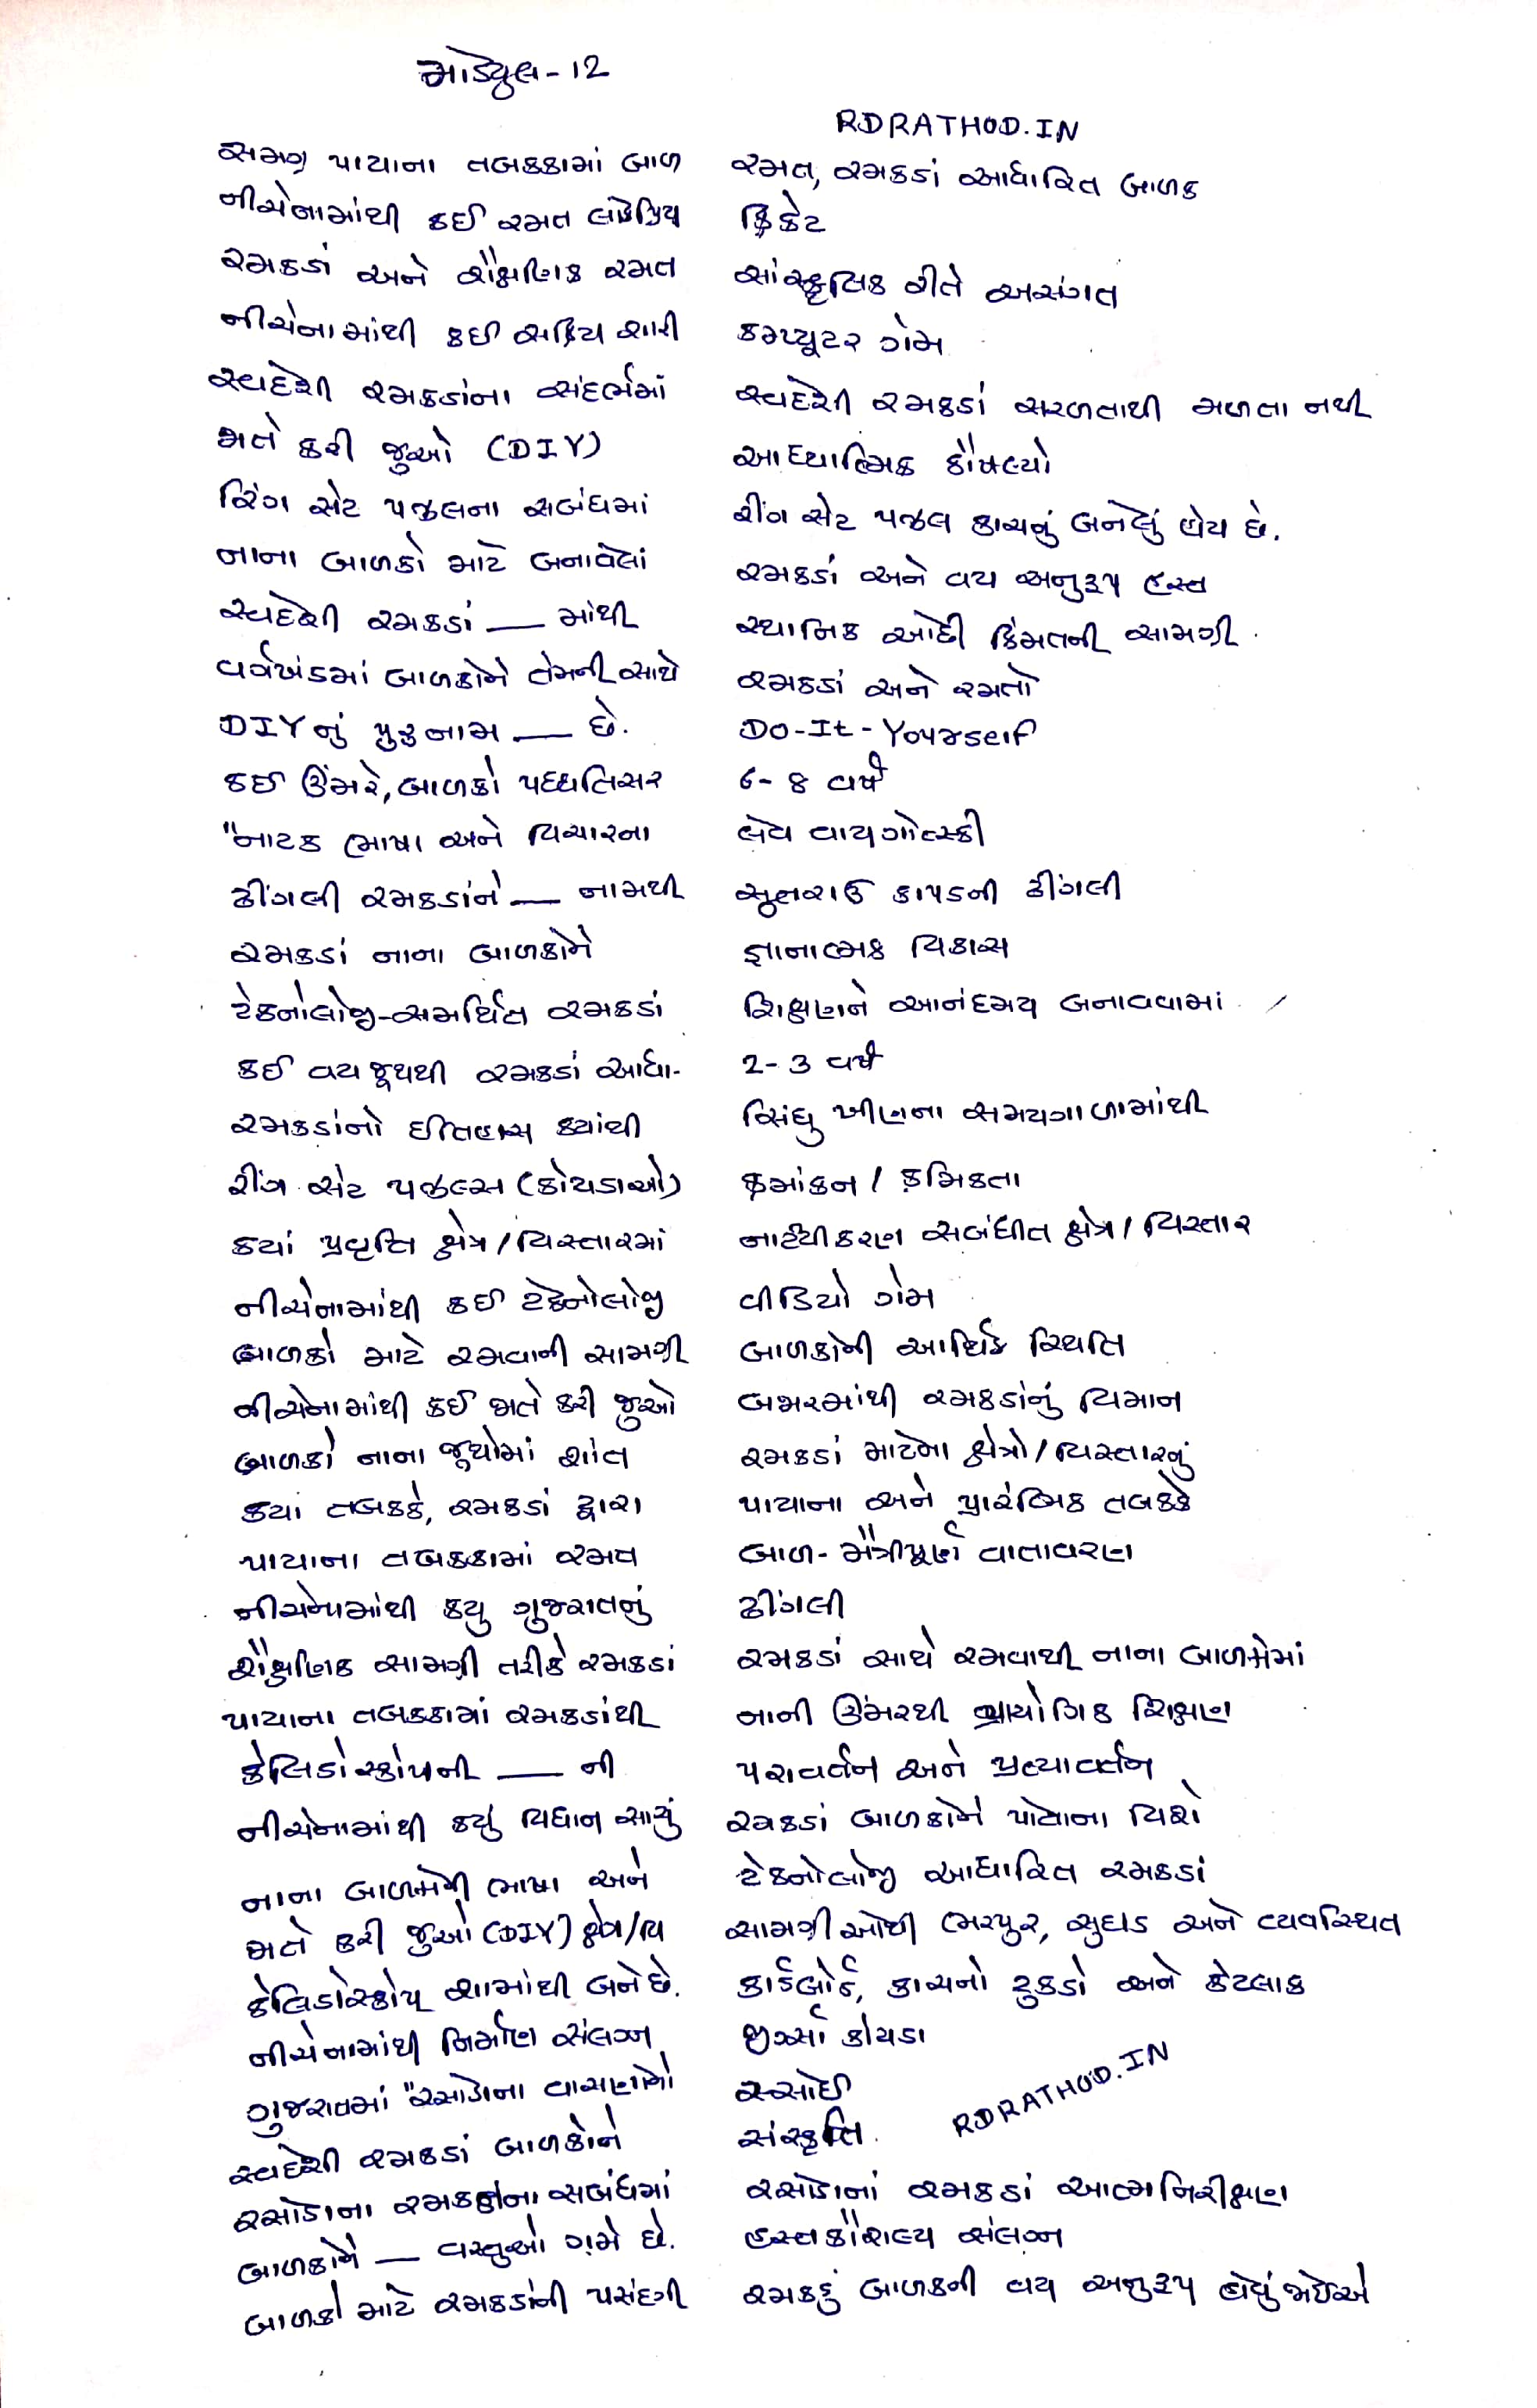 મોડ્યુલ-12
RDRATHOD.IN
સમગ્ર પાયાના તબક્કામાં બાળ રમત, રમકડાં આધારિત બાળક
નીચેનામાંથી કઈ રમત લોકપ્રિય ક્રિકેટ
રમકડાં અને શૈક્ષણિક રમત સાંસ્કૃતિક રીતે અસંગત
નીચેનામાંથી કઈ સક્રિય શારી કમ્પ્યૂટર ગેમ
સ્વદેશી રમકડાંના સંદર્ભમાં સ્વદેશી રમકડાં સરળતાથી મળતા નથી
જાતે કરી જુઓ (DIY) આધ્યાત્મિક કૌશલ્યો
રિંગ સેટ પઝલના સબંધમાં રીંગ સેટ પઝલ કાચનું બનેલું હોય છે.
નાના બાળકો માટે બનાવેલાં રમકડાં અને વય અનુરૂપ હસ્ત
સ્વદેશી રમકડાં ___ માંથી સ્થાનિક ઓછી કિંમતની સામગ્રી.
વર્ગખંડમાં બાળકોને તેમની સાથે રમકડાં અને રમતો
DIY નું પુરુ નામ ___ છે. Do-It-Yourself
કઈ ઉંમરે, બાળકો પધ્ધતિસર 6-8 વર્ષ
"નાટક ભાષા અને વિચારના લેવ વાયગોત્સ્કી
ઢીંગલી રમકડાંને ___ નામથી સુતરાઉ કાપડની ઢીંગલી
રમકડાં નાના બાળકોને જ્ઞાનાત્મક વિકાસ
ટેકનોલોજી-સમર્થિત રમકડાં શિક્ષણને આનંદમય બનાવવામાં
કઈ વય જૂથથી રમકડાં આધા- 2-3 વર્ષ
રમકડાંનો ઈતિહાસ ક્યાંથી સિંધુ ખીણના સમયગાળામાંથી
રીંગ સેટ પઝલ્સ (કોયડાઓ) ક્રમાંકન / ક્રમિકતા
કયાં પ્રવૃત્તિ ક્ષેત્ર/વિસ્તારમાં નાટ્યીકરણ સબંધીત ક્ષેત્ર/વિસ્તાર
નીચેનામાંથી કઈ ટેકનોલોજી વીડિયો ગેમ
બાળકો માટે રમવાની સામગ્રી બાળકોની આર્થિક સ્થિતિ
નીચેનામાંથી કઈ જાતે કરી જુઓ બમરમાંથી રમકડાંનું વિમાન
બાળકો નાના જૂથોમાં શાંત રમકડાં માટેના ક્ષેત્રો/વિસ્તારનું
કયાં તબક્કે, રમકડાં દ્વારા પાયાના અને પ્રારંભિક તબક્કે
પાયાના તબક્કામાં રમત બાળ-મૈત્રીપૂર્ણ વાતાવરણ
નીચેનામાંથી કયુ ગુજરાતનું ઢીંગલી
શૈક્ષણિક સામગ્રી તરીકે રમકડાં રમકડાં સાથે રમવાથી નાના બાળકોમાં
પાયાના તબક્કામાં રમકડાંથી નાની ઉંમરથી પ્રાયોગિક શિક્ષણ
કેલિડોસ્કોપની ___ ની પરાવર્તન અને પ્રત્યાવર્તન
નીચેનામાંથી કયું વિધાન સાચું રમકડાં બાળકોને પોતાના વિશે
નાના બાળકોની ભાષા અને ટેકનોલોજી આધારિત રમકડાં
જાતે કરી જુઓ (DIY) ક્ષેત્ર/વિ સામગ્રીઓથી ભરપુર, સુઘડ અને વ્યવસ્થિત
કેલિડોસ્કોપ શામાંથી બને છે. કાર્ડબોર્ડ, કાચનો ટુકડો અને કેટલાક
નીચેનામાંથી નિર્માણ સંલગ્ન જીગ્સૉ કોયડા
ગુજરાતમાં "રસોડાના વાસણોનો રસોઈ
RDRATHOD.IN
સ્વદેશી રમકડાં બાળકોને સંસ્કૃતિ.
રસોડાના રમકડાંના સબંધમાં રસોડાનાં રમકડાં આત્મનિરીક્ષણ
બાળકોને ___ વસ્તુઓ ગમે છે. હસ્તકૌશલ્ય સંલગ્ન
બાળકો માટે રમકડાંની પસંદગી રમકડું બાળકની વય અનુરૂપ હોવું જોઈએ